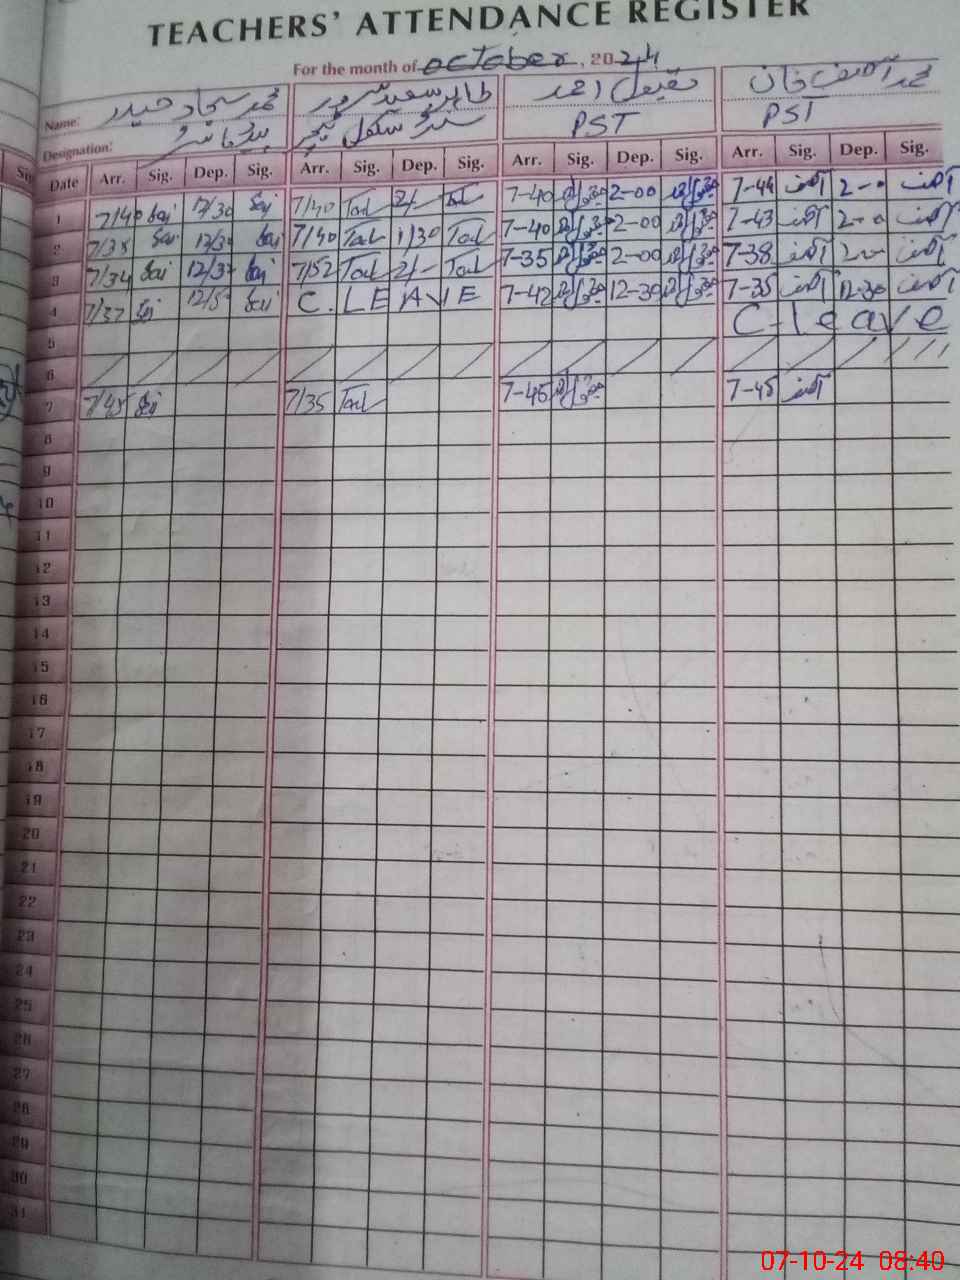 TEACHERS' ATTENDANCE REGISTER
For the month of October, 2024
Name: محمد سجاد حیدر طاہر سعید سرور مقبول احمد محمد آصف خان
Designation: PST PST
Date Arr. Sig. Dep. Sig. Arr. Sig. Dep. Sig. Arr. Sig. Dep. Sig. Arr. Sig. Dep. Sig.
1 7/40 Saj 12/30 Saj 7/40 2/- 7-40 مقبول احمد 2-00 مقبول احمد 7-44 آصف 2-0 آصف
2 7/38 Saj 12/30 Saj 7/40 1/30 7-40 مقبول احمد 2-00 مقبول احمد 7-43 آصف 2-0 آصف
3 7/34 Saj 12/37 Saj 7/52 2/- 7-35 مقبول احمد 2-00 مقبول احمد 7-38 آصف 2-0 آصف
4 7/37 Saj Saj C. LEAVE 7-42 مقبول احمد 12-30 مقبول احمد 7-35 آصف 12-30 آصف
5 C-leave
6
7 7/45 Saj 7/35 7-45 مقبول احمد 7-45 آصف
8
9
10
11
12
13
14
15
16
17
18
19
20
21
22
23
24
25
26
27
28
29
30
31
07-10-24 08:40